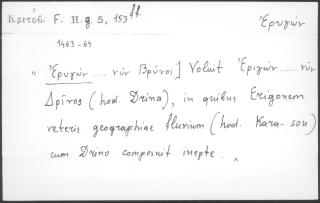 Κριτόβ. F. H. g. 5, 153 ff.
Ἐρυγών
1463-64
" Ἐρυγών .... νῦν Βρύνος] Voluit Ἐριγών ...... νῦν
Δρῖνος (hod. Drina), in quibus Erigonem
veteris geographiae fluvium (hod. Kara-sou)
cum Drino composuit inepte. "